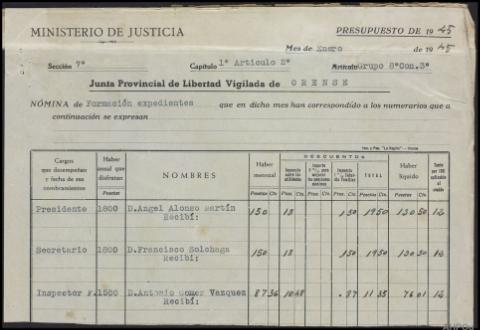 MINISTERIO DE JUSTICIA
PRESUPUESTO DE 1945
Mes de Enero de 1945
Sección 7ª Capítulo 1ª Articulo 2º Artículo Grupo 8º Con.3º
Junta Provincial de Libertad Vigilada de ORENSE
NÓMINA de Formación expedientes que en dicho mes han correspondido a los numerarios que a
continuación se expresan
DESCUENTOS
Cargos que desempeñan y fecha de sus nombramientos
Haber anual que disfrutan
Pesetas
NOMBRES
Haber mensual
Pesetas Cts.
Impuesto sobre las utilidades
Ptas. Cts.
Ptas. Cts.
Ptas. Cts.
TOTAL
Pesetas Cts.
Haber líquido
Pesetas Cts.
Tanto por 100 aplicable al sueldo
Presidente 1800 D.Angel Alonso Martín 150 18 150 1950 13050 12
Recibí:
Secretario 1800 D.Francisco Solchaga 150 18 150 1950 13050 12
Recibí:
Inspector F. 1500 D.Antonio Gomez Vazquez 8736 1048 87 1135 7601 12
Recibí: